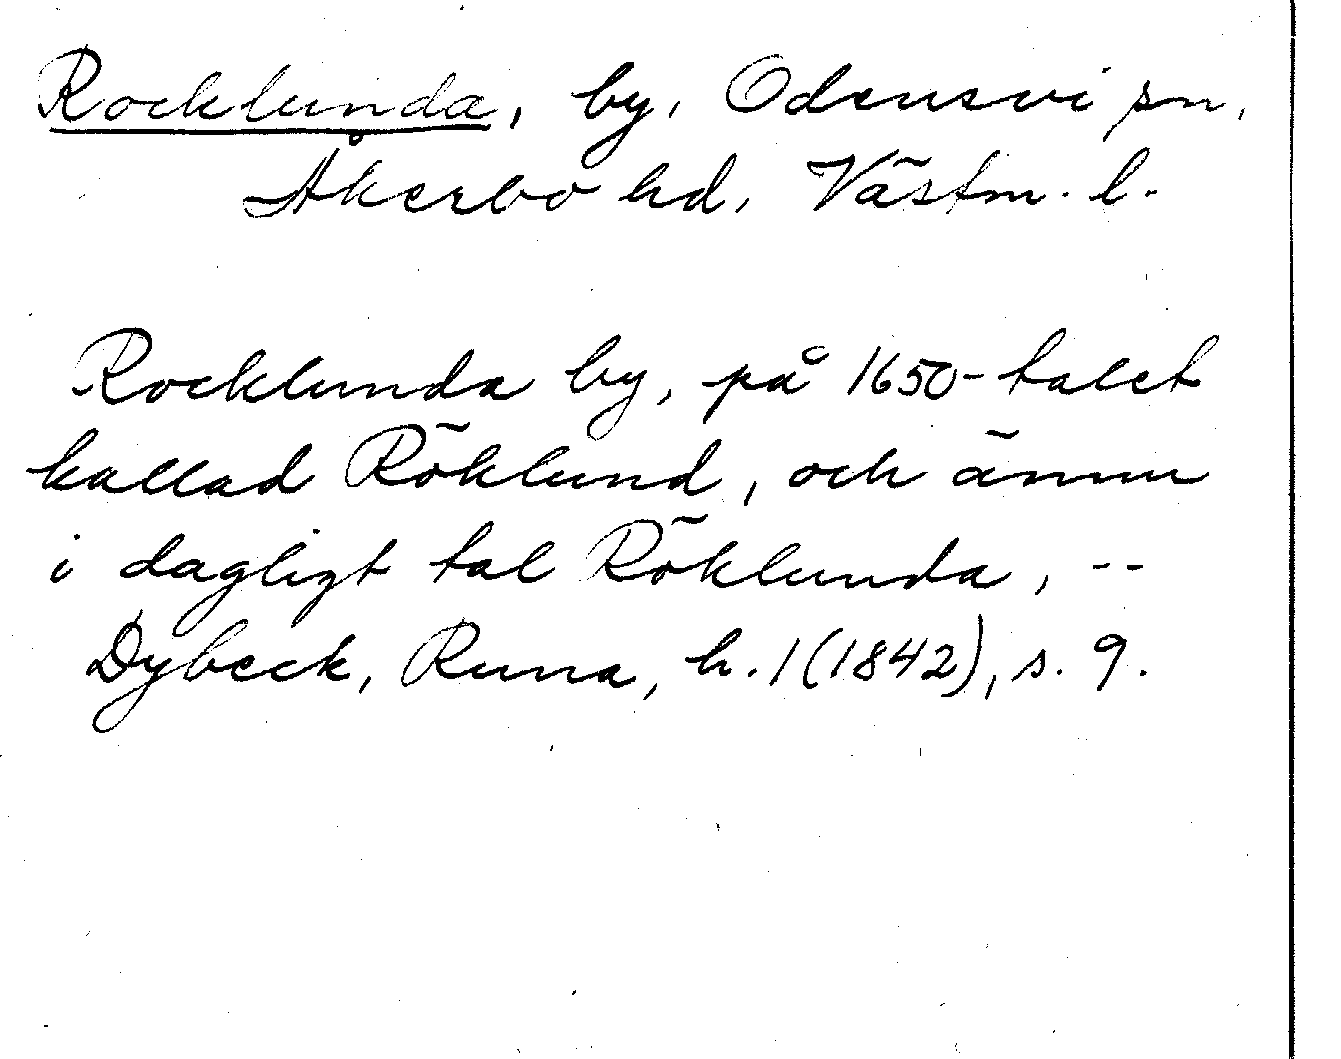 Rocklunda, by, Odensvi sn,
Åkerbo hd, Västm. l.
Rocklunda by, på 1650-talet
kallad Röklund, och ännu
i dagligt tal Röklunda, --
Dybeck, Runa, h. 1 (1842), s. 9.